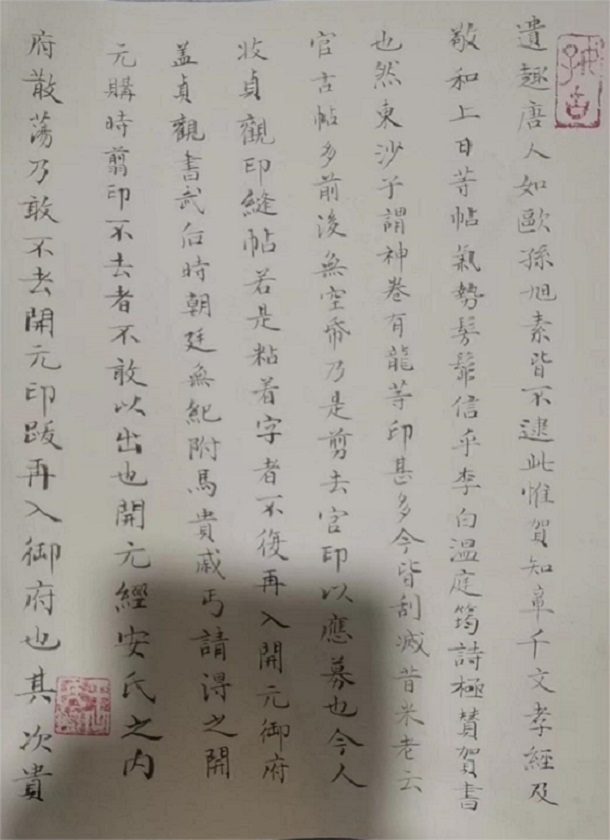 遺趣唐人如歐孫旭素皆不逮此惟賀知章千文孝經及
敬和上日等帖氣勢髣髴信乎李白溫庭筠詩極賛賀書
也然東沙子謂神卷有龍等印甚多今皆刮滅昔米老云
官古帖多前後無空帋乃是剪去官印以應募也今人
收貞觀印縫帖若是粘着字者不復再入開元御府
盖貞觀書武后時朝廷無紀附馬貴戚丐請得之開
元購時剪印不去者不敢以出也開元經安氏之内
府散蕩乃敢不去開元印跋再入御府也其次貴